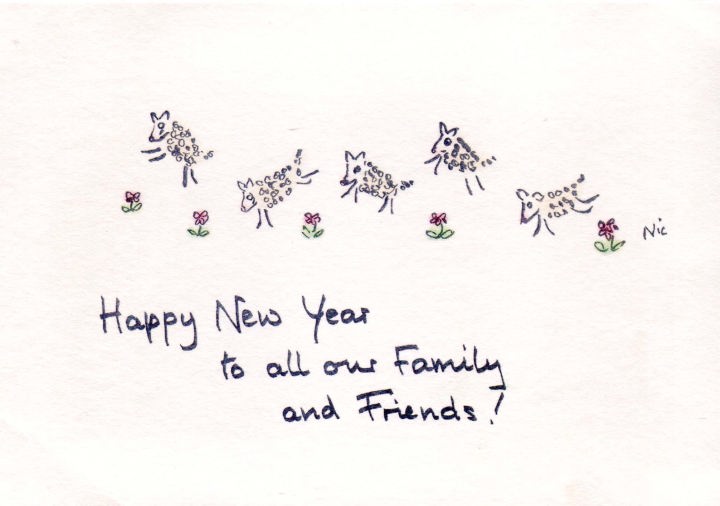 Nic
Happy New Year
to all our Family
and Friends!